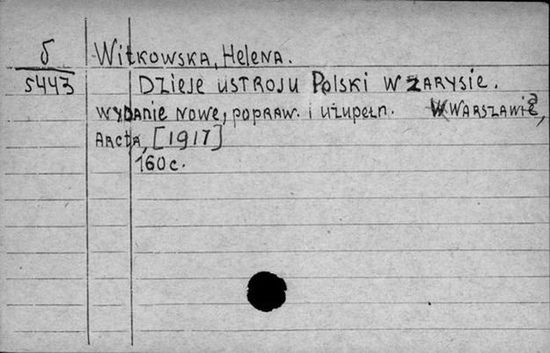 б
5443
Witkowska, Helena.
Dzieje ustroju Polski w zarysie.
Wydanie nowe, popraw. i uzupełn. W Warszawie,
Arcta, [1917]
160 c.